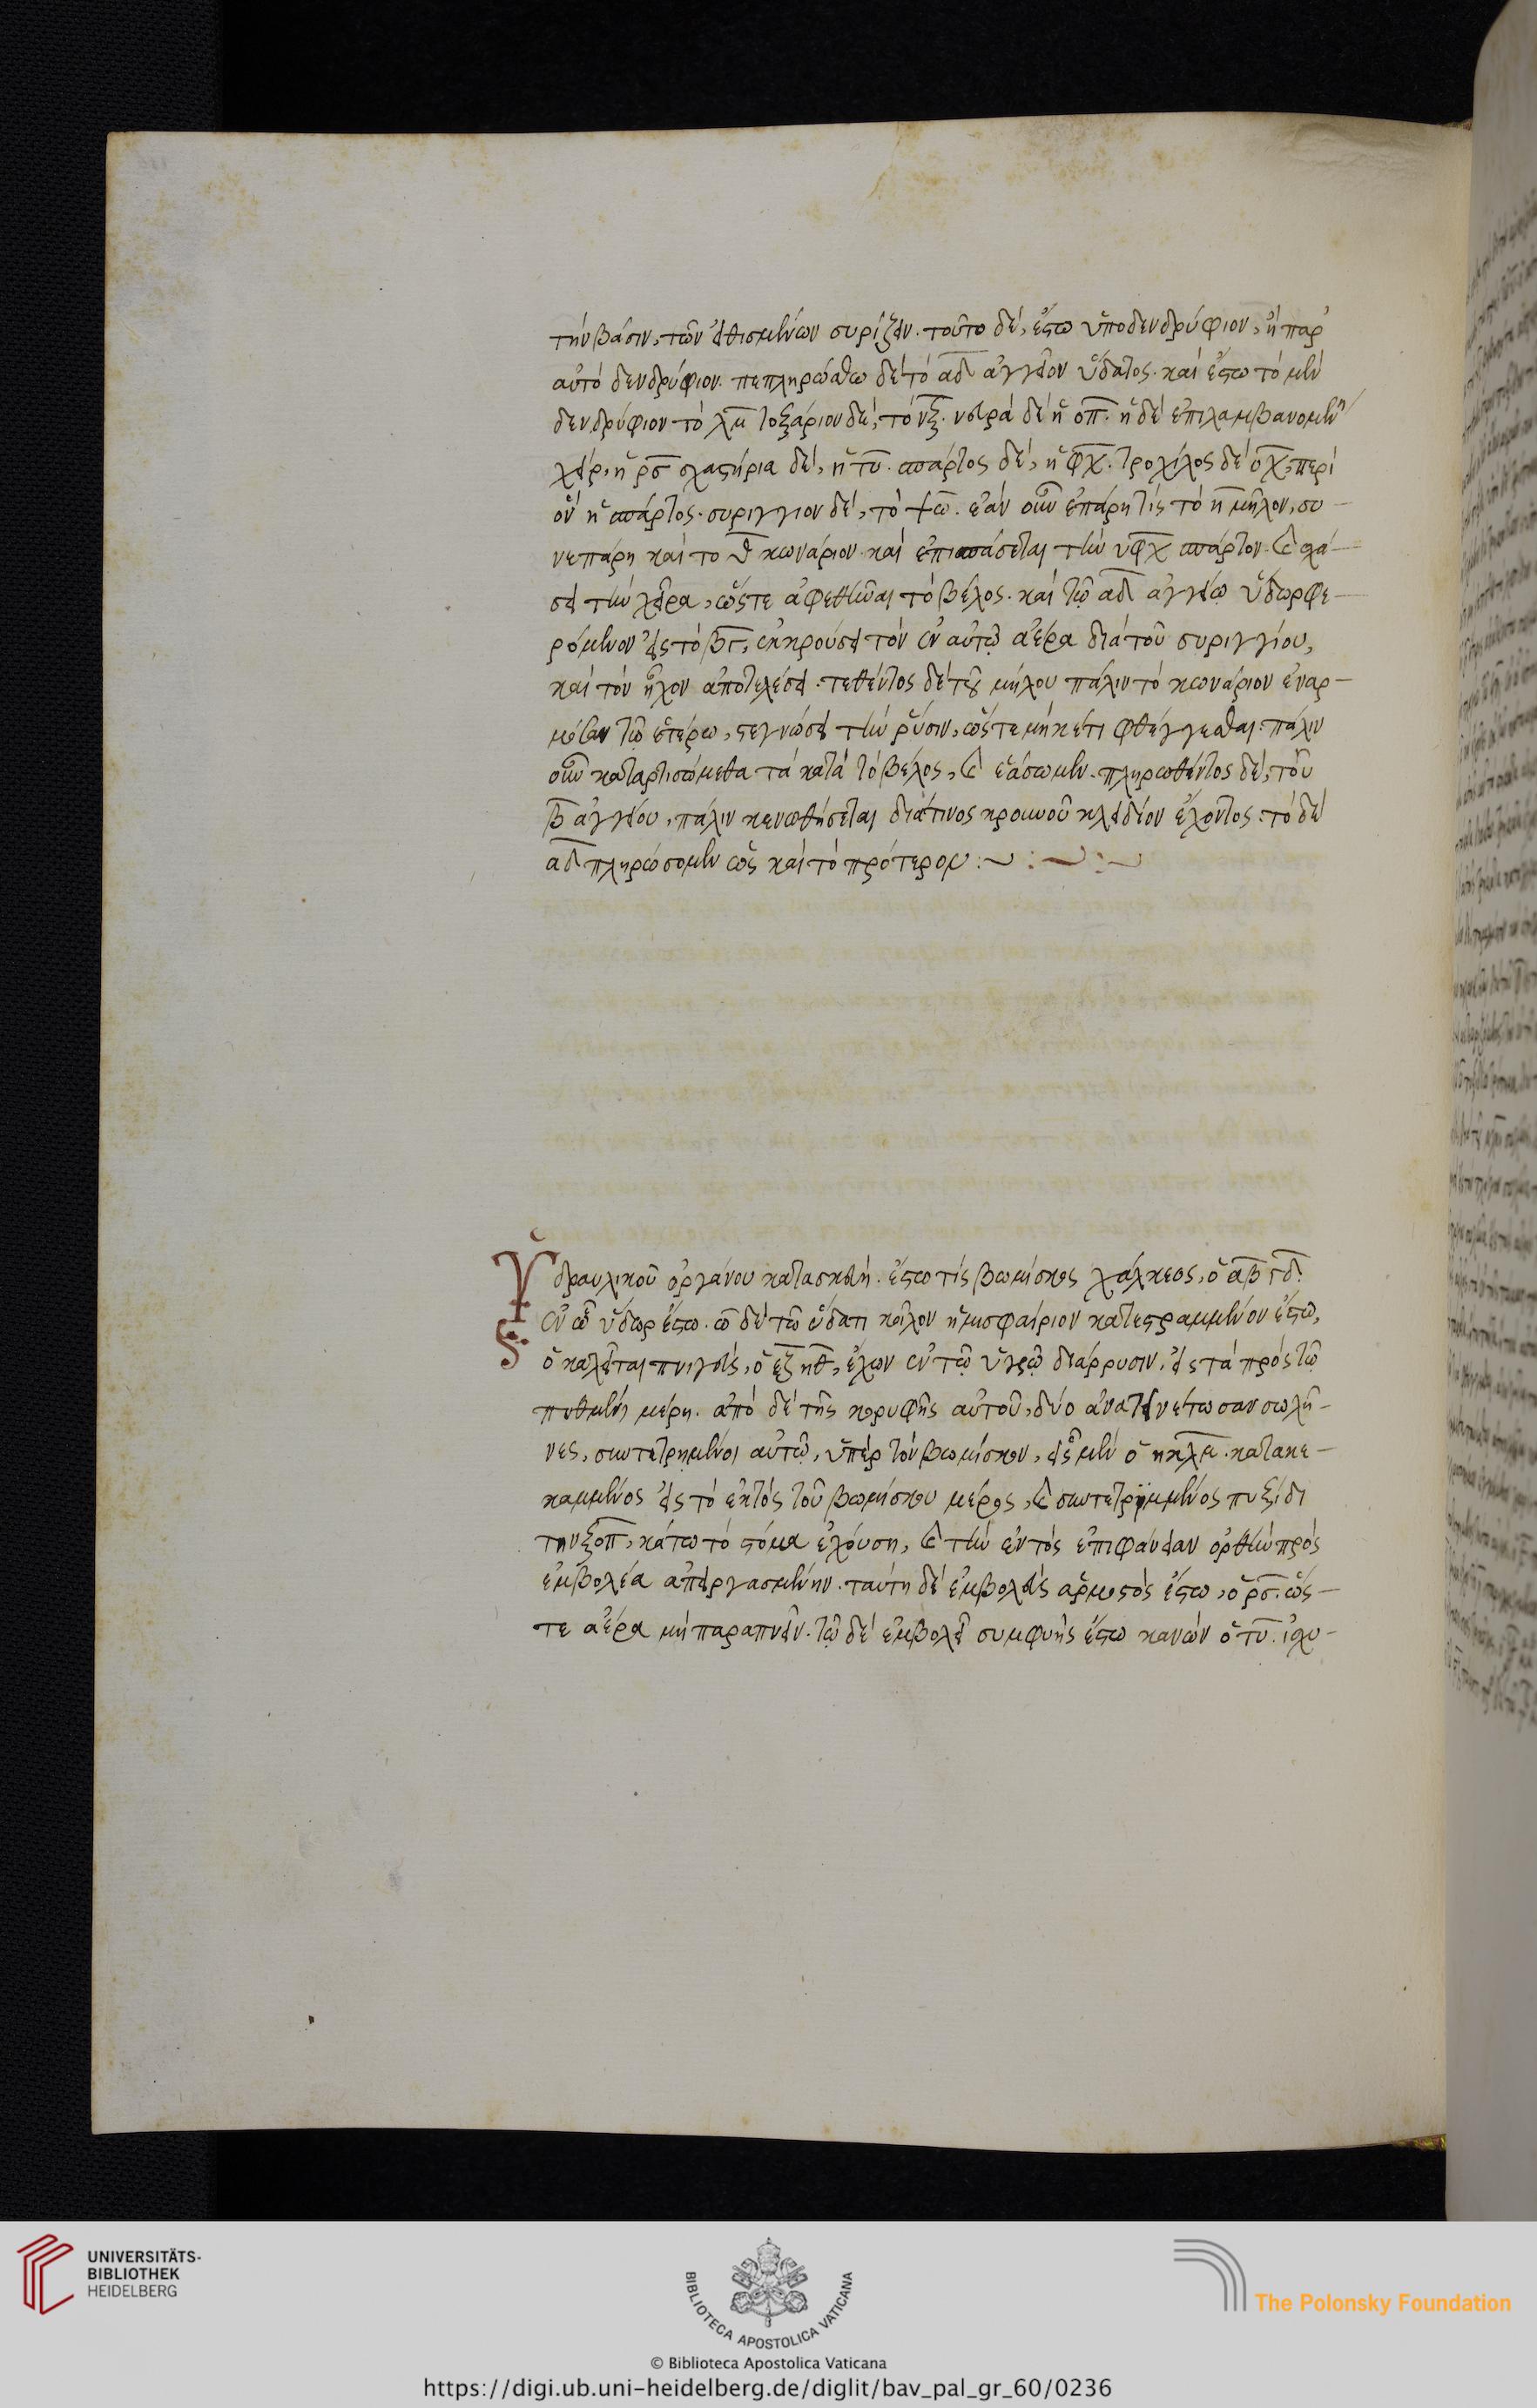 τὴν βάσιν, τῶν εἰθισμένων συρίζειν. τοῦτο δὲ, ἔστω ὑποδενδρύφιον, ἢ παρ'
αὐτὸ δενδρύφιον. πεπληρώσθω δὲ τὸ αδ ἀγγεῖον ὕδατος. καὶ ἔστω τὸ μὲν
δενδρύφιον τὸ χμ τοξάριον δὲ, τὸ νξ. νευρὰ δὲ ἡ οπ. ἡ δὲ ἐπιλαμβανομένη
χείρ, ἡ ρσ σχαστήρια δὲ, ἡ τυ. σπάρτος δὲ, ἡ φχ. τροχίλος δὲ οχ, περὶ
ὃν ἡ σπάρτος. συρίγγιον δὲ, τὸ ψω. ἐὰν οὖν ἐπάρῃ τίς τὸ π μῆλον, συ-
νεπάρῃ καὶ το θ κωνάριον καὶ ἐπισπάσεται τὴν υφχ σπάρτον. καὶ σχά-
σει τὴν χεῖρα, ὥστε ἀφεθῆναι τὸ βέλος. καὶ τῷ αδ ἀγγείῳ ὕδωρ φε-
ρόμενον εἰς τὸ βγ, ἐκκρούσει τὸν ἐν αὐτῷ ἀέρα διὰ τοῦ συριγγίου,
καὶ τὸν ἦχον ἀποτελέσει. τεθέντος δὲ τοῦ μήλου πάλιν τὸ κωνάριον ἐναρ-
μόσαν τῷ ἑτέρω, στεγνώσει τὴν ῥύσιν, ὥστε μηκέτι φθέγγεσθαι. πάλιν
οὖν καταρτισόμεθα τὰ κατὰ τὸ βέλος, καὶ ἐάσωμεν. πληρωθέντος δὲ, τοῦ
βγ ἀγγείου, πάλιν κενωθήσεται διά τινος κρουνοῦ κλειδίον ἔχοντος. τὸ δὲ
αδ πληρώσομεν ὡς καὶ τὸ πρότερον :~ : ~ : ~
Ὑδραυλικοῦ ὀργάνου κατασκευή. ἔστω τίς βωμίσκος χάλκεος, ὁ αβγδ.
ἐν ᾧ ὕδωρ ἔστω. ἐν δὲ τῷ ὕδατι κοῖλον ἡμισφαίριον κατεστραμμένον ἔστω,
ὃ καλεῖται πνιγεὺς, ὁ εζηθ, ἔχων ἐν τῷ ὑγρῷ διάρρυσιν, εἰς τὰ πρὸς τῷ
πυθμένι μέρη. ἀπὸ δὲ τῆς κορυφῆς αὐτοῦ, δύο ἀνατεινέτωσαν σωλῆ-
νες, συντετρημένοι αὐτῷ, ὑπὲρ τὸν βωμίσκον, εἷς μὲν ὁ ηκλμ. κατακε-
καμμένος εἰς τὸ ἐκτὸς τοῦ βωμίσκου μέρος, καὶ συντετρημμένος πυξίδι
τῇ νξοπ, κάτω τὸ στόμα ἐχούση, καὶ τὴν ἐντὸς ἐπιφάνειαν ὀρθὴν πρὸς
ἐμβολέα ἀπειργασμένην. ταύτη δὲ ἐμβολεὺς ἁρμοστὸς ἔστω, ὁ ρσ. ὥσ-
τε ἀέρα μὴ παραπνεῖν. τῷ δὲ ἐμβολεῖ συμφυὴς ἔστω κανὼν ὁ τυ. ἰσχυ-
UNIVERSITÄTS-
BIBLIOTHEK
HEIDELBERG
BIBLIOTECA APOSTOLICA VATICANA
The Polonsky Foundation
© Biblioteca Apostolica Vaticana
https://digi.ub.uni-heidelberg.de/diglit/bav_pal_gr_60/0236